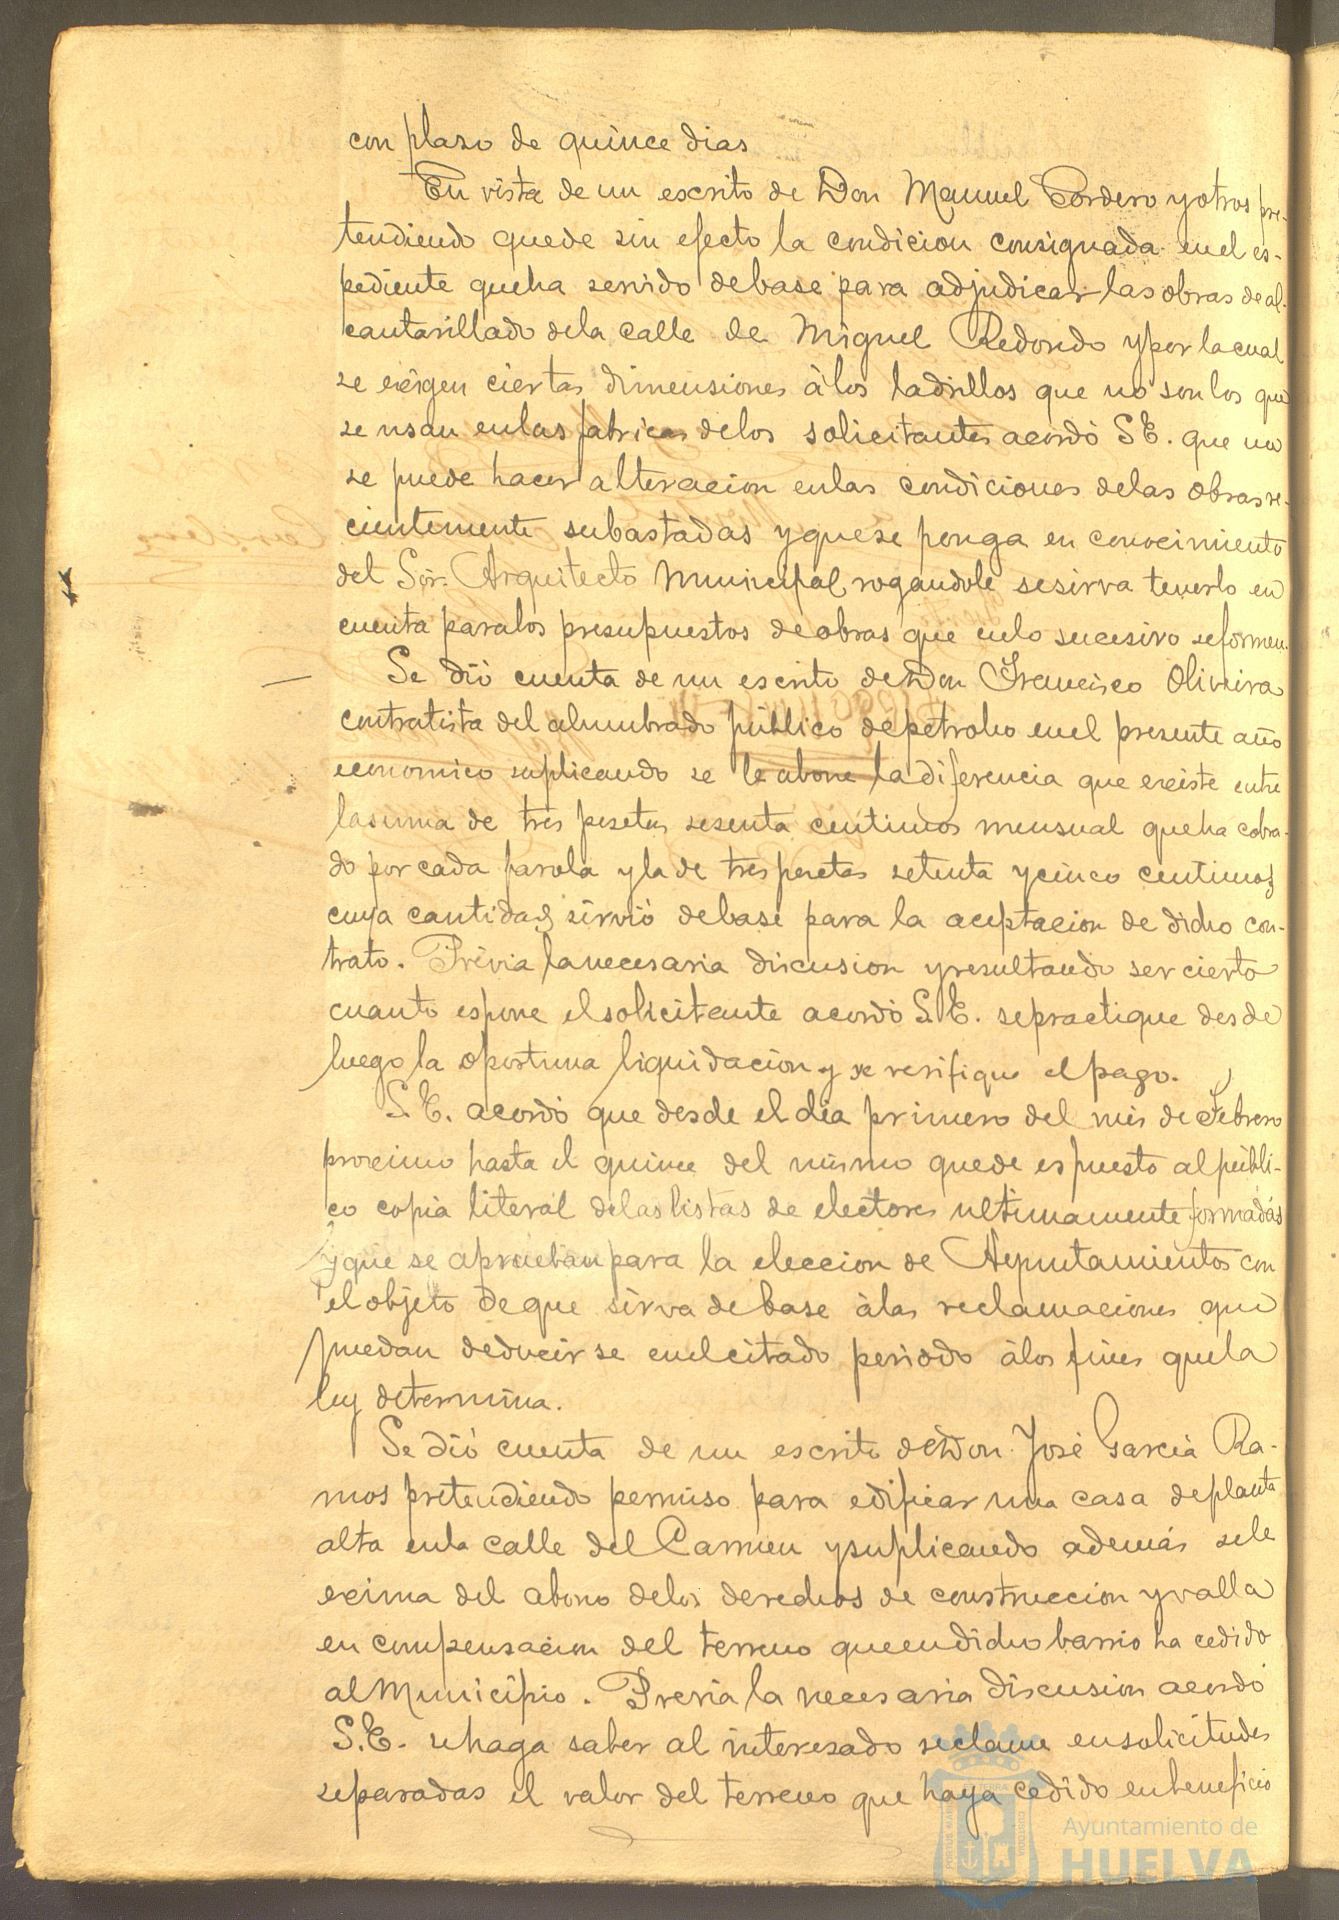 con plazo de quince dias
En vista de un escrito de Don Manuel Cordero y otros pre-
tendiendo quede sin efecto la condicion consignada en el es-
pediente que ha servido de base para adjudicar las obras de al-
cantarillado de la calle de Miguel Redondo y por la cual
se exigen ciertas dimensiones á los ladrillos que no son los que
se usan en las fabricas de los solicitantes acordó S.E. que no
se puede hacer alteracion en las condiciones de las obras re-
cientemente subastadas y que se ponga en conocimiento
del Sór. Arquitecto Municipal rogandole se sirva tenerlo en
cuenta para los presupuestos de obras que en lo sucesivo se formen.
Se dió cuenta de un escrito de Don Francisco Oliveira
contratista del alumbrado público de petroleo en el presente año
economico suplicando se le abone la diferencia que existe entre
la suma de tres pesetas sesenta centimos mensual que ha cobra-
do por cada farola y la de tres pesetas setenta y cinco centimos
cuya cantidad sirvió de base para la aceptacion de dicho con-
trato. Prévia la necesaria discusion y resultando ser cierto
cuanto espone el solicitante acordó S.E. se practique desde
luego la oportuna liquidacion y se verifique el pago.
S.E. acordó que desde el dia primero del mes de Febrero
proximo hasta el quince del mismo quede espuesto al públi-
co copia literal de las listas de electores ultimamente formadas
y que se aprueban para la eleccion de Ayuntamientos con
el objeto de que sirva de base á las reclamaciones que
puedan deducirse en el citado periodo á los fines que la
ley determina.
Se dió cuenta de un escrito de Don José Garcia Ra-
mos pretendiendo permiso para edificar una casa de planta
alta en la calle del Carmen y suplicando además se le
exima del abono de los derechos de construccion y valla
en compensacion del terreno que en dicho barrio ha cedido
al Municipio. Previa la necesaria discusion acordó
S.E. se haga saber al interesado reclame en solicitudes
separadas el valor del terreno que haya cedido en beneficio
Ayuntamiento de
HUELVA